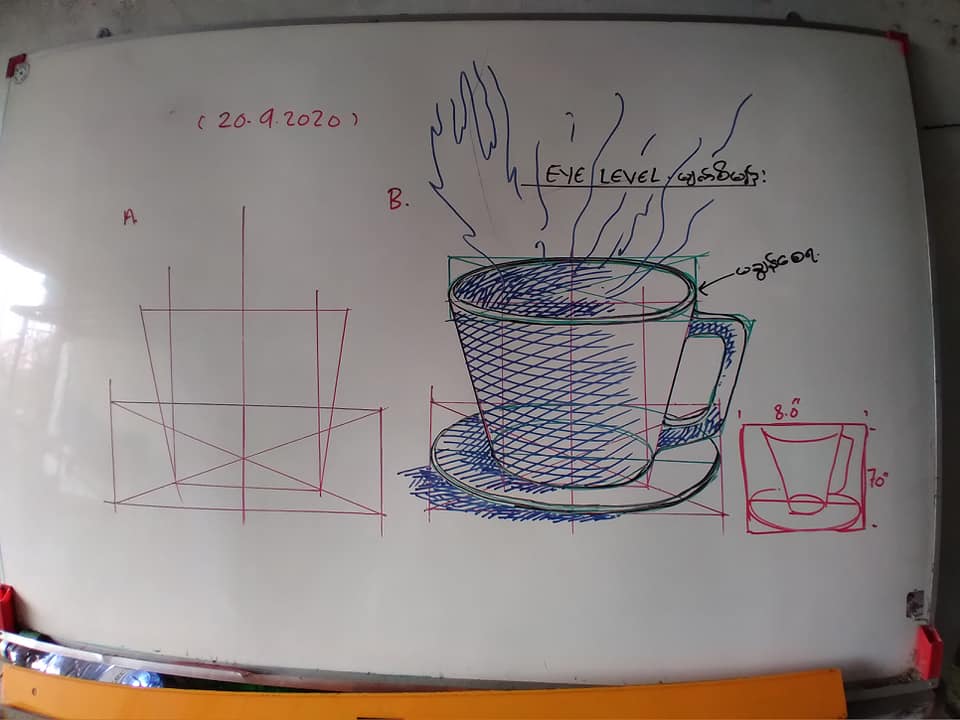 ( 20.9.2020 )
A
B.
EYE LEVEL မျက်စိမှန်း
8.0"
70"